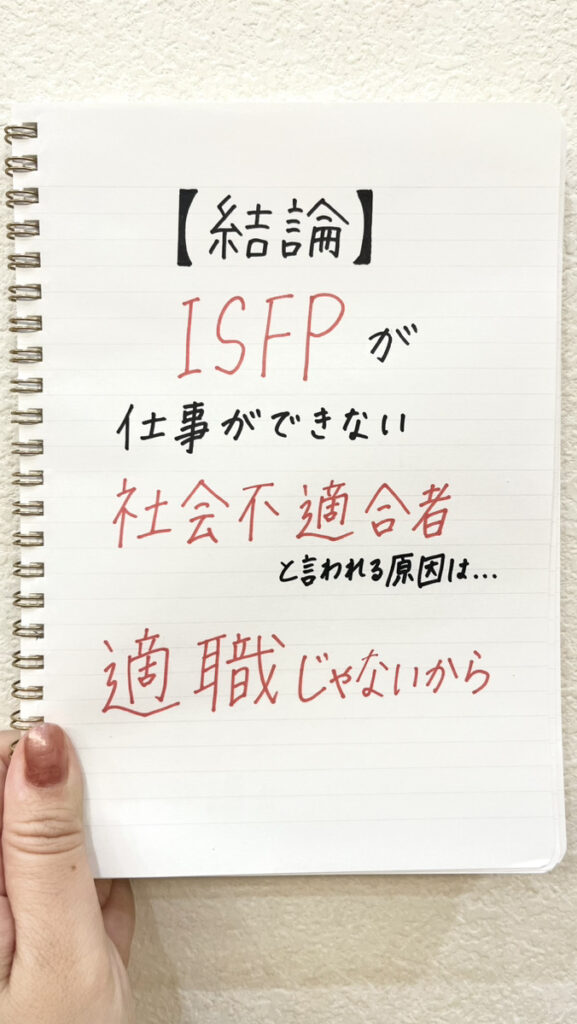 【結論】
ISFPが
仕事ができない
社会不適合者
と言われる原因は...
適職じゃないから